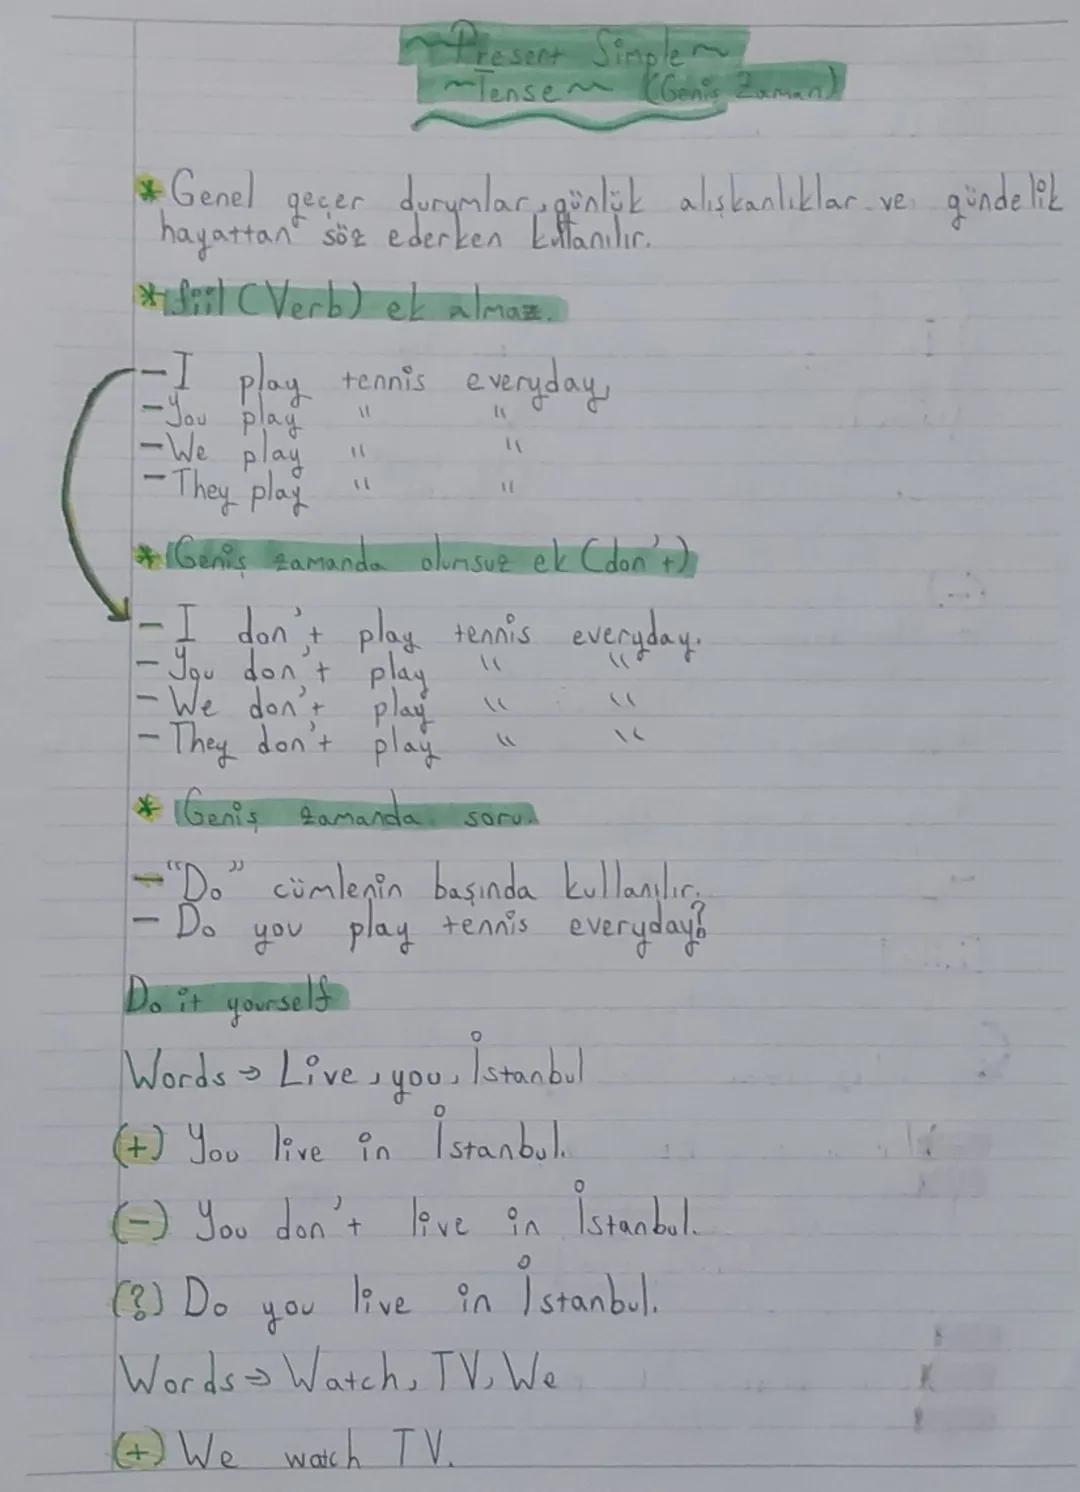 ~Present Simple~
~Tense~ (Geniş Zaman)
* Genel geçer durumlar, günlük alışkanlıklar ve gündelik
hayattan söz ederken kullanılır.
* fiil (Verb) ek almaz.
- I play tennis everyday,
- You play " "
- We play " "
- They play " "
* Geniş zamanda olumsuz ek (don't)
- I don't play tennis everyday.
- You don't play " "
- We don't play " "
- They don't play " "
* Geniş zamanda soru.
- "Do" cümlenin başında kullanılır.
- Do you play tennis everyday?
Do it yourself
Words → Live, you, İstanbul
(+) You live in İstanbul.
(-) You don't live in İstanbul.
(?) Do you live in İstanbul.
Words → Watch, TV, We
(+) We watch TV.